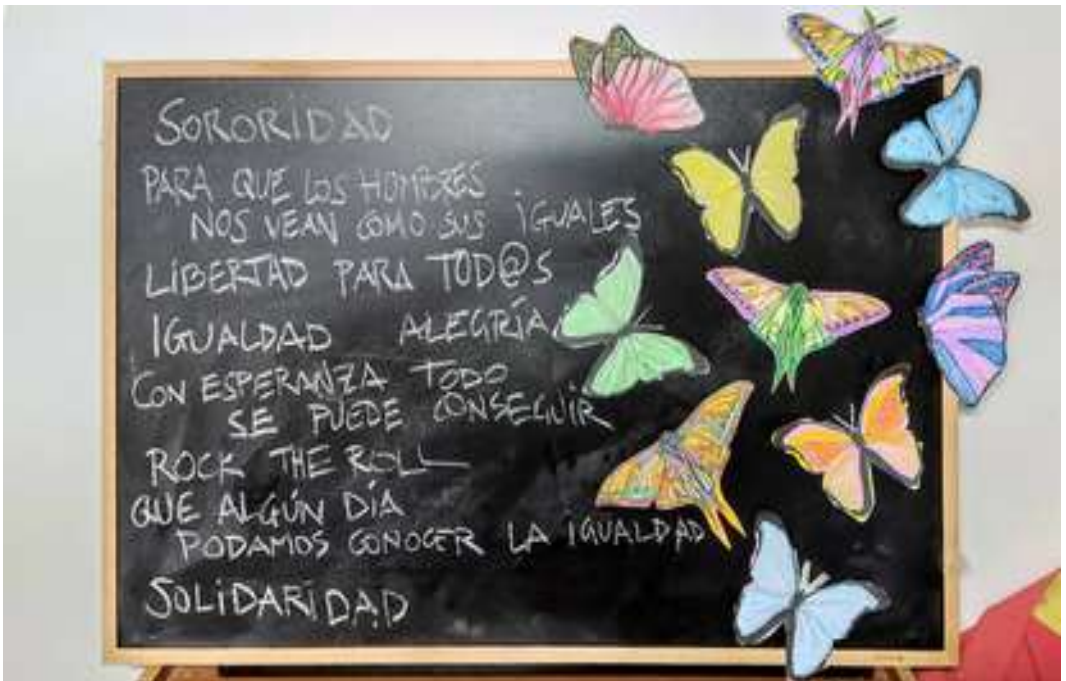 SORORIDAD
PARA QUE LOS HOMBRES
NOS VEAN COMO SUS IGUALES
LIBERTAD PARA TOD@S
IGUALDAD ALEGRÍA
CON ESPERANZA TODO
SE PUEDE CONSEGUIR
ROCK THE ROLL
QUE ALGÚN DÍA
PODAMOS CONOCER LA IGUALDAD
SOLIDARIDAD